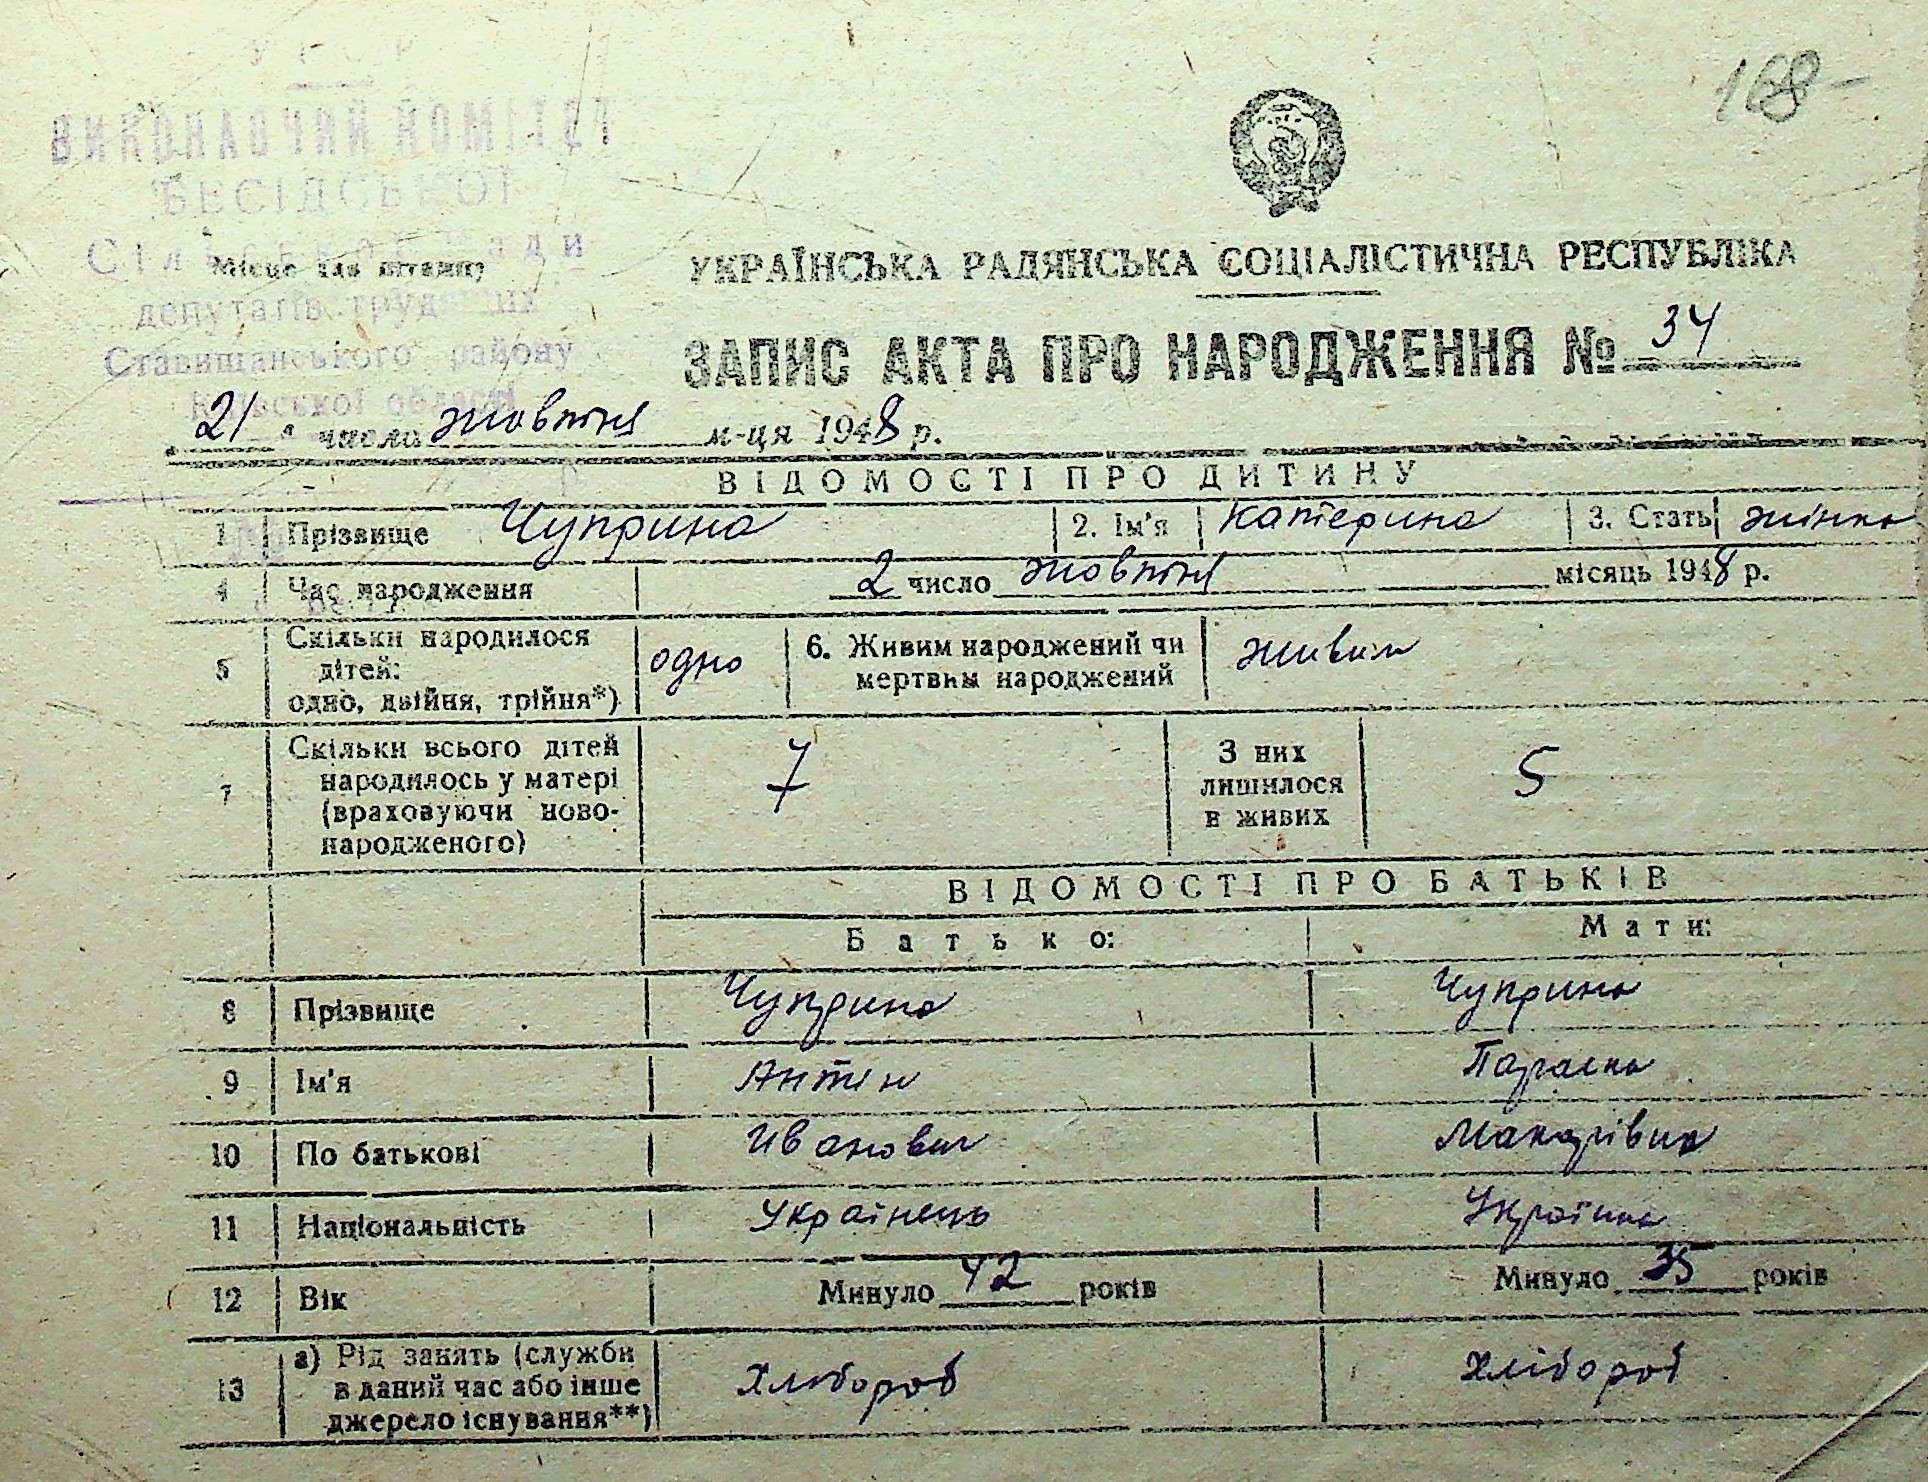 168-
УРСР
ВИКОНАВЧИЙ КОМІТЕТ
БЕСІДСЬКОЇ
Сільської Ради
Місце для штампу
депутатів трудящих
Ставищанського району
Київської області
УКРАЇНСЬКА РАДЯНСЬКА СОЦІАЛІСТИЧНА РЕСПУБЛІКА
ЗАПИС АКТА ПРО НАРОДЖЕННЯ № 34
„21“ числа жовтня м-ця 1948 р.
ВІДОМОСТІ ПРО ДИТИНУ
1 Прізвище Чуприна 2. Ім'я Катерина 3. Стать жінка
4 Час народження 2 число жовтня місяць 1948 р.
5 Скільки народилося дітей: одно, двійня, трійня*) одно 6. Живим народжений чи мертвим народжений живим
7 Скільки всього дітей народилось у матері (враховуючи новонародженого) 7 З них лишилося в живих 5
ВІДОМОСТІ ПРО БАТЬКІВ
Батько: Мати:
8 Прізвище Чуприна Чуприна
9 Ім'я Антін Параска
10 По батькові Іванович Макарівна
11 Національність Українець Українка
12 Вік Минуло 42 років Минуло 35 років
13 а) Рід занять (служби в даний час або інше джерело існування**) Хлібороб Хлібороб